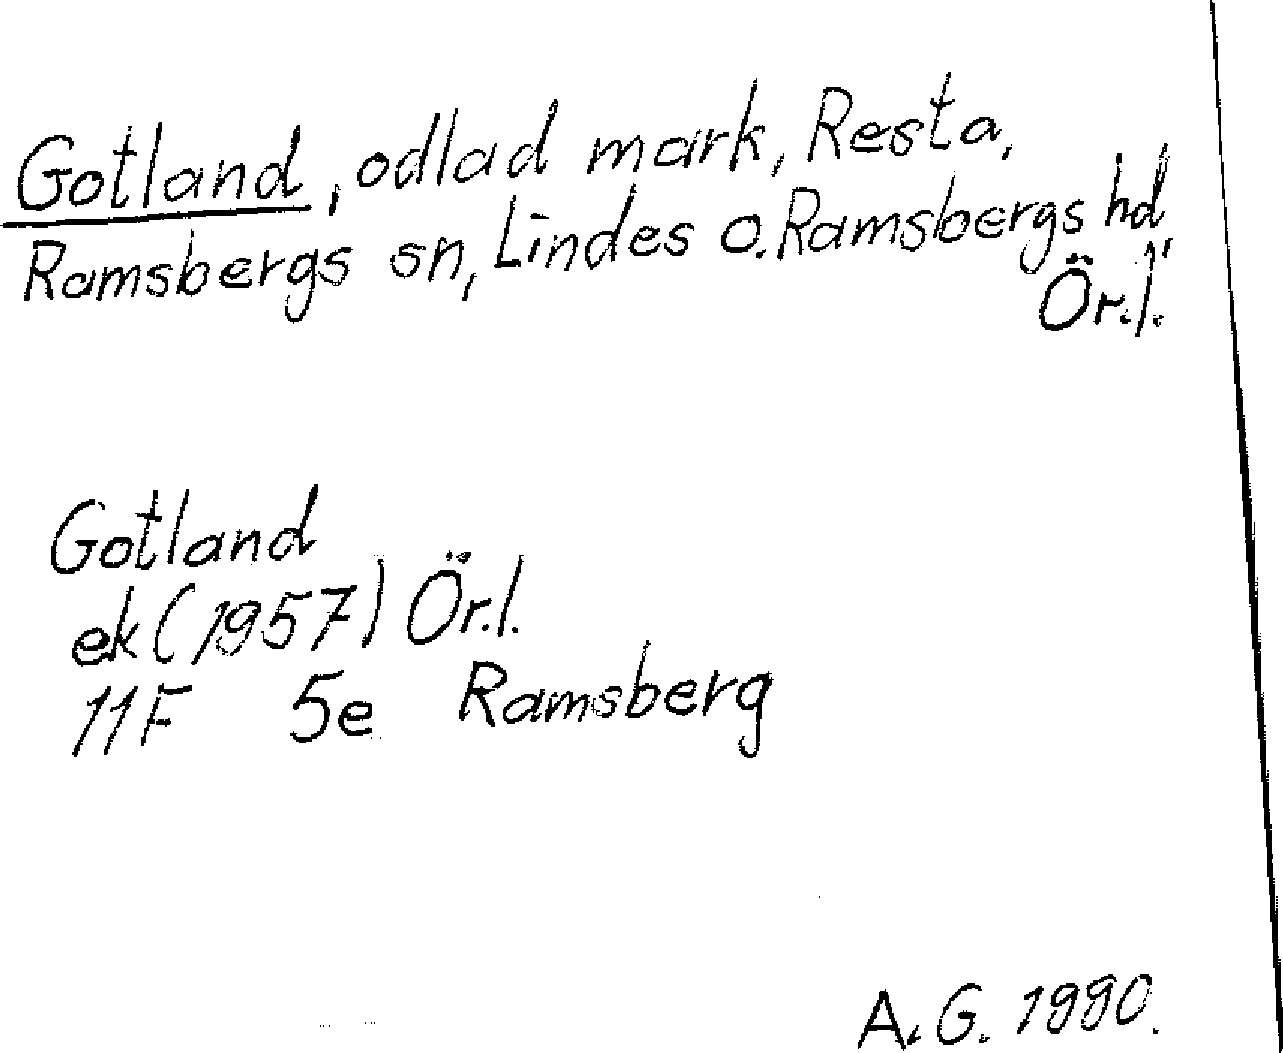 Gotland, odlad mark, Resta,
Ramsbergs sn, Lindes o. Ramsbergs hd,
Ör.l.
Gotland
ek (1957) Ör.l.
11F 5e Ramsberg
A.G. 1990.